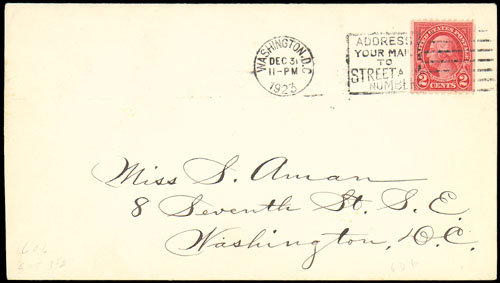 WASHINGTON, D.C.
DEC 31
11-PM
1923
ADDRESS
YOUR MAIL
TO
STREET A
NUMBE
UNITED STATES POSTAGE
2 CENTS 2
Miss S. Aman
8 Seventh St. S. E.
Washington, D.C.